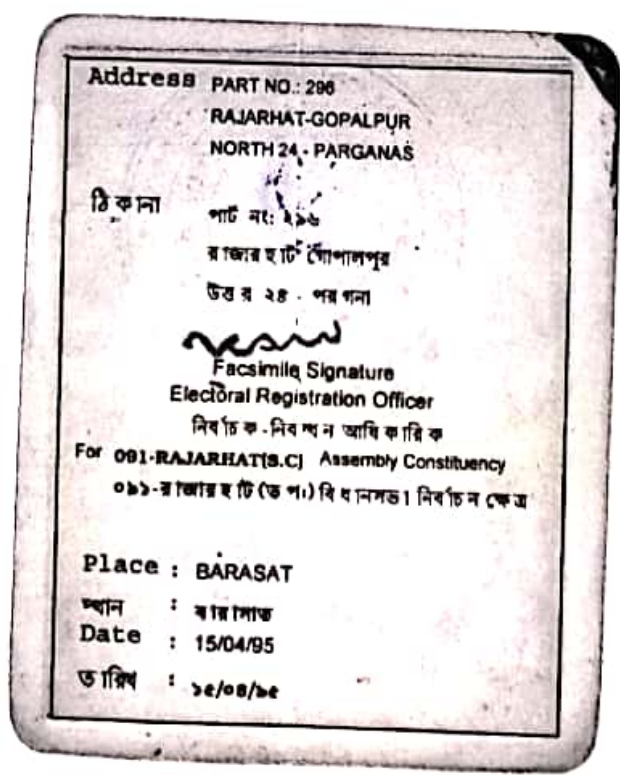 Address PART NO.: 296
RAJARHAT-GOPALPUR
NORTH 24 - PARGANAS
ঠিকানা পার্ট নং: ২৯৬
রাজারহাট গোপালপুর
উত্তর ২৪ - পরগনা
Facsimile Signature
Electoral Registration Officer
নির্বাচক-নিবন্ধন আধিকারিক
For 091-RAJARHAT(S.C) Assembly Constituency
০৯১-রাজারহাট(তপঃ) বিধানসভা নির্বাচন ক্ষেত্র
Place : BARASAT
স্থান : বারাসাত
Date : 15/04/95
তারিখ : ১৫/০৪/৯৫